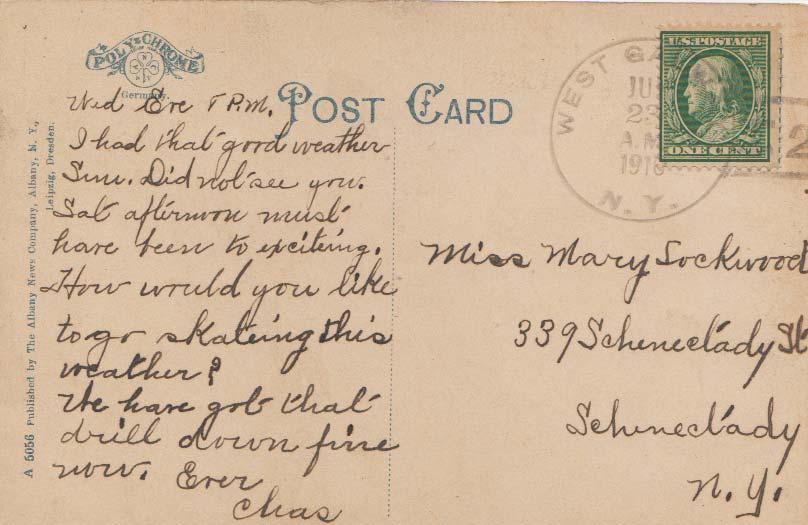 POLY-CHROME
Germany.
POST CARD
U.S. POSTAGE
ONE CENT
WEST
23
A.M.
N.Y.
2
A 5056 Published by The Albany News Company, Albany, N. Y.,
Leipzig, Dresden.
Wed Eve P.M.
I had that good weather
Sun. Did not see you.
Sat afternoon must
have been to exciteing.
How would you like
to go skateing this
weather?
We have got that
drill down fine
now. Ever
Chas
Miss Mary Lockwood
339 Schenectady St
Schenectady
N.Y.